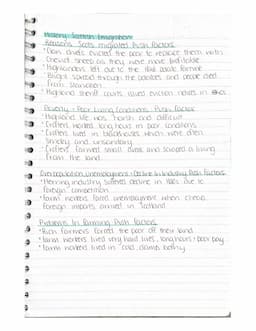 History: Scottish Emigration
Reasons Scots migrated Push Factors
• Clan chiefs evicted the poor to replace them with
Cheviot sheep as they were more profitable
• Highlanders left due to the 1846 potato famine
• Blight spread through the potatoes and people died
from starvation.
• Highland sheriff courts issued eviction notices in
Poverty + Poor Living Conditions - Push Factor
• Highland life was harsh and difficult
• Crofters worked long hours in poor conditions
• Crofters lived in blackhouses which were often
smokey and unsanitary.
• Crofters farmed small areas and scraped a living
from the land.
Overpopulation, unemployment + Decline in Industry Push Factors
• Herring industry suffered decline in 1880s due to
foreign competition.
• Farm workers faced unemployment when cheap
foreign imports arrived in Scotland
Problems in Farming Push Factors
• Rich farmers forced the poor off their land
• Farm workers lived very hard lives, long hours + poor pay
• Farm workers lived in "cold, damp bothy